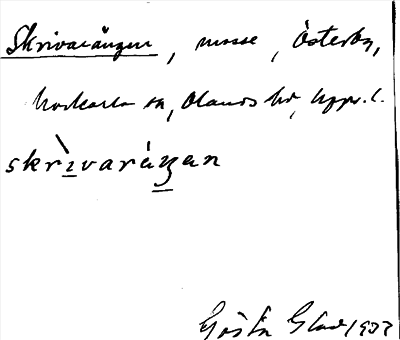 Skrivarängen, mosse, Österby,
Morkarla sn, Olands hd, Upps. l.
skrìvaráŋan
Gösta Gland 1932